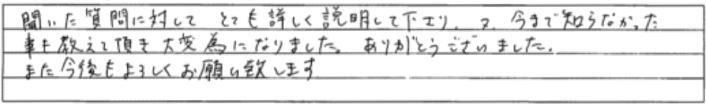 聞いた質問に対して とても詳しく説明して下さり、又、今まで知らなかった
事も教えて頂き大変為になりました。ありがとうございました。
また今後もよろしくお願い致します